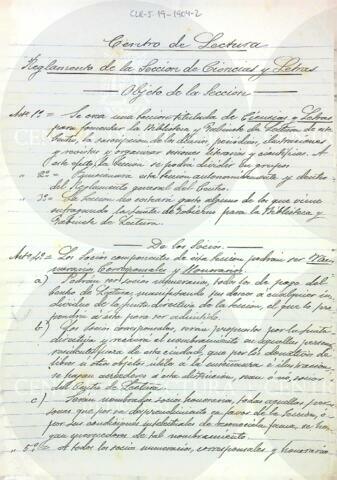 CLE-5-19-1904-2
Centro de Lectura
Reglamento de la Seccion de Ciencias y Letras
Objeto de la Seccion
Arto 1º = Se crea una seccion titulada de Ciencias y Letras
para fomentar la Biblioteca y Gabinete de Lectura de este
Centro, la suscripcion de los diarios, periodicos, ilustraciones
y revistas y organizar veladas literarias y cientificas. A
este efecto la Seccion se podrá dividir en grupos.
" 2º = Funcionará esta Seccion autonomicamente y dentro
del Reglamento general del Centro.
" 3º = La Seccion no costeará gasto alguno de los que viene
sufragando la Junta de Gobierno para la Biblioteca y
Gabinete de Lectura.
De los Socios
Arto 4º = Los Socios componentes de esta Seccion podrán ser Nu-
merarios, Corresponsales y Honorarios
a) Podrán ser socios numerarios, todos los de pago del
Centro de Lectura, manifestando sus deseos á cualquier in-
dividuo de la Junta directiva de la Seccion, el que lo pro-
pondrá á esta para ser admitido.
b) Los Socios corresponsales, serán propuestos por la Junta
directiva y recaerá el nombramiento en aquellas personas
residentes fuera de esta ciudad, que por los donativos de
libros ú otros objetos útiles á la enseñanza é ilustracion,
se hagan acreedores á esta distincion, sean ó no, socios
del Centro de Lectura.
c) Serán nombrados socios honorarios, todas aquellas perso-
nas que por su desprendimiento en favor de la Seccion, ó
por sus condiciones intelectuales de reconocida fama, se ha-
gan merecedores de tal nombramiento.
" 5º = A todos los socios numerarios, corresponsales y honorarios